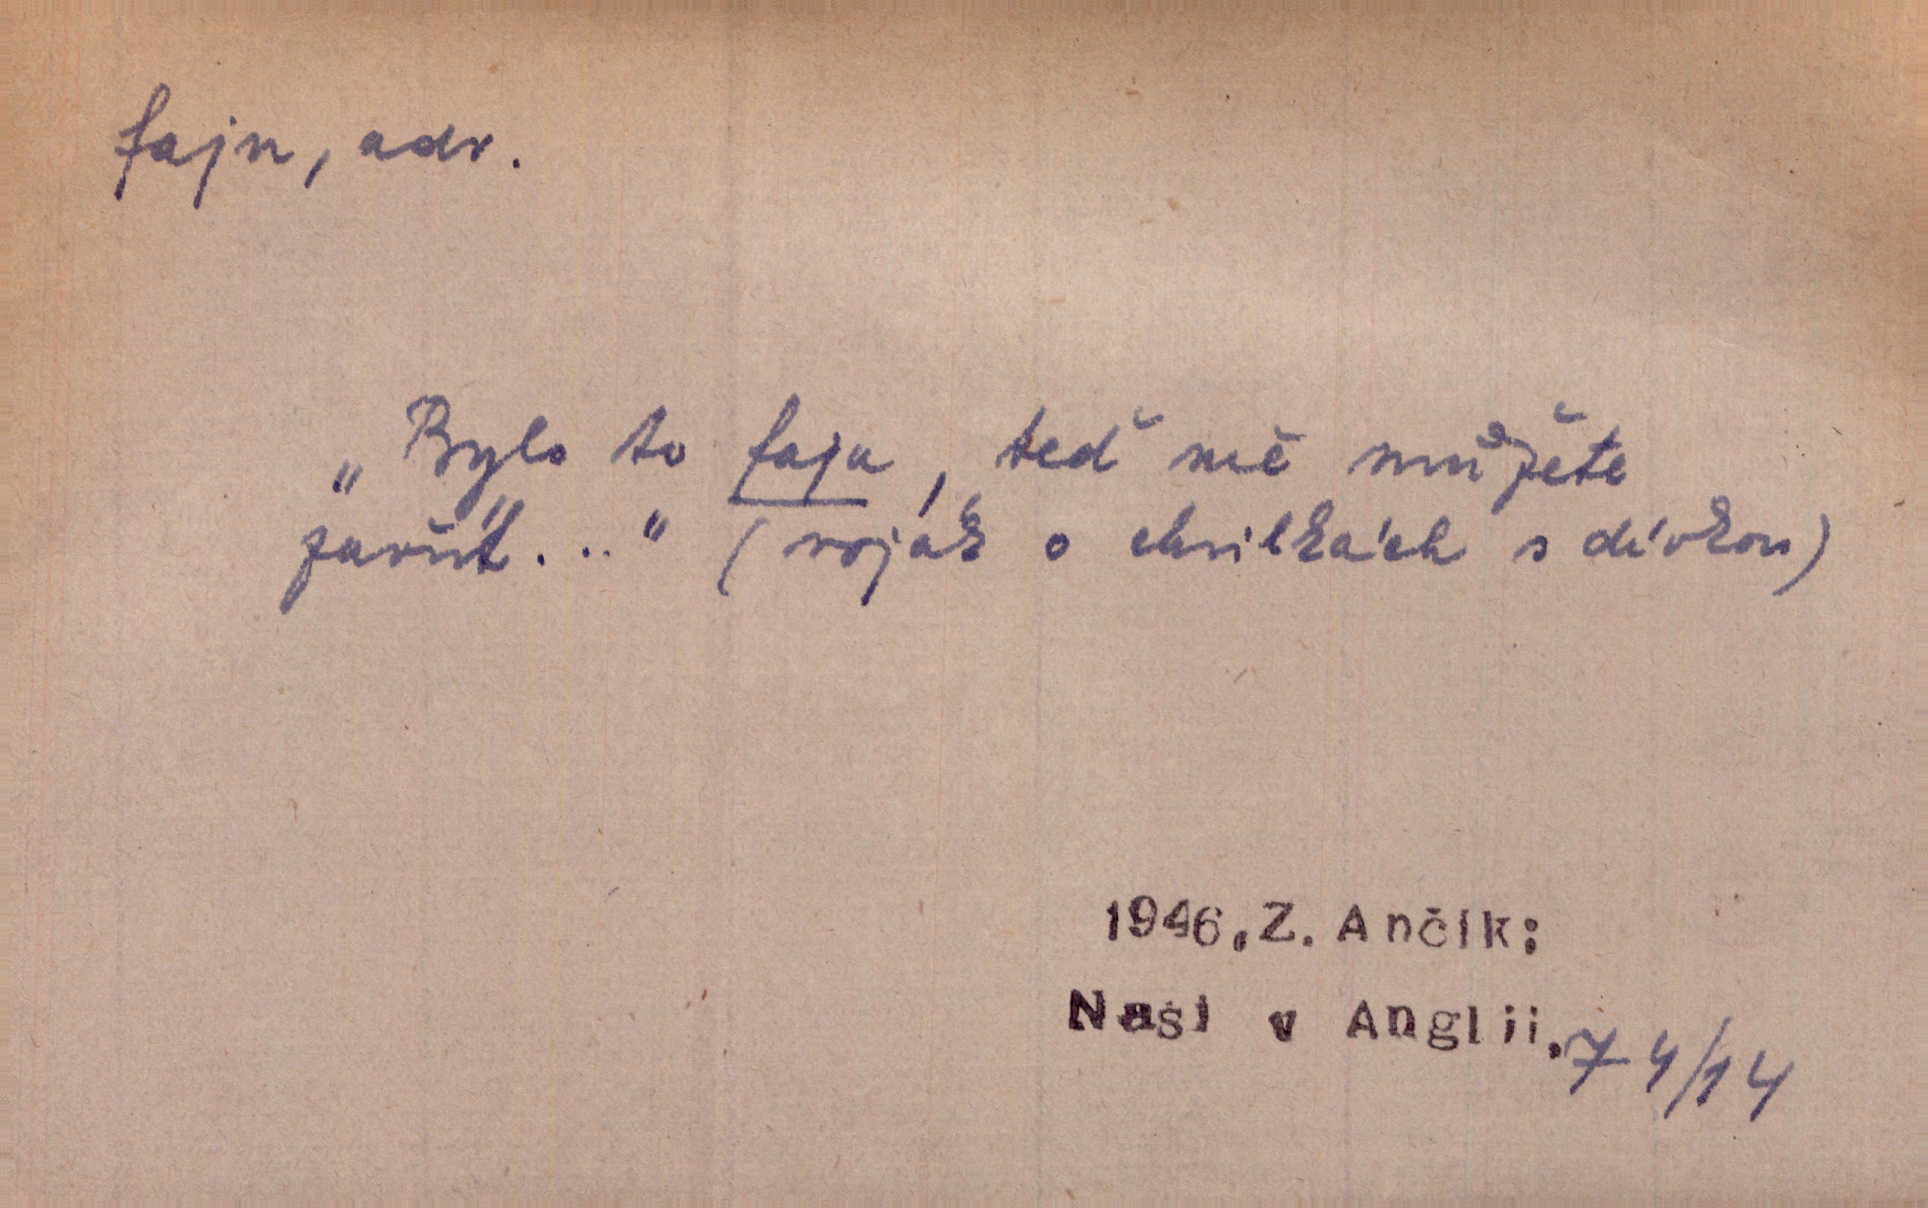 fajn, adv.
„Bylo to fajn, teď mě můžete
zavřít..." (voják o chvilkách s dívkou)
1946, Z. Ančík:
Naši v Anglii, 74/14